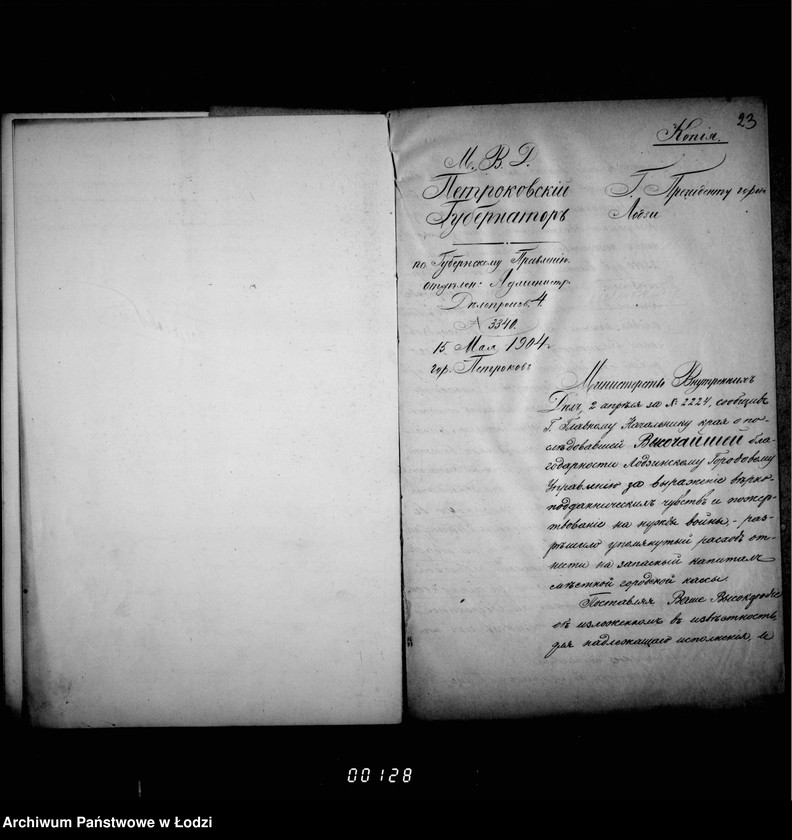 23
Копія.
М. В. Д.
Петроковскій
Губернаторъ
по Губернскому Правленію
отдѣлен: Администр.
Дѣлопроизв. 4.
№ 3340.
15 Мая 1904 г.
гор. Петроковъ
Г. Президенту города
Лодзи
Министерство Внутреннихъ
Дѣлъ, 2 апрѣля за № 2224, сообщивъ
Г. Главному Начальнику края о по-
слѣдовавшей Высочайшей бла-
годарности Лодзинскому Городовому
Управленію за выраженіе вѣрно-
подданническихъ чувствъ и пожер-
твованіе на нужды войны, - раз-
рѣшило упомянутый расходъ от-
нести на запасный капиталъ
смѣстной городской кассы.
Поставляя Ваше Высокородіе
объ изложенномъ въ извѣстность,
для надлежащаго исполненія, и
00128
Archiwum Państwowe w Łodzi